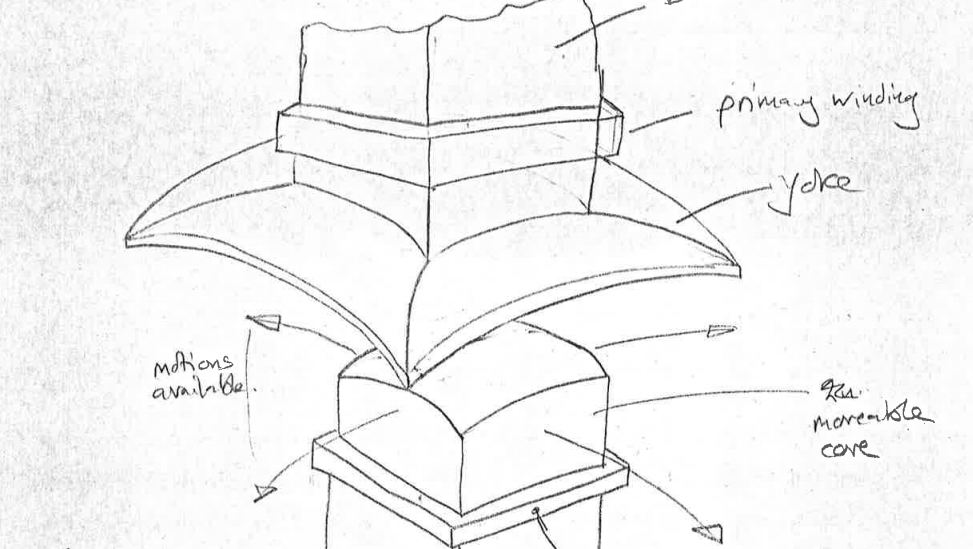 primary winding
yoke
motions
available.
moveable
core